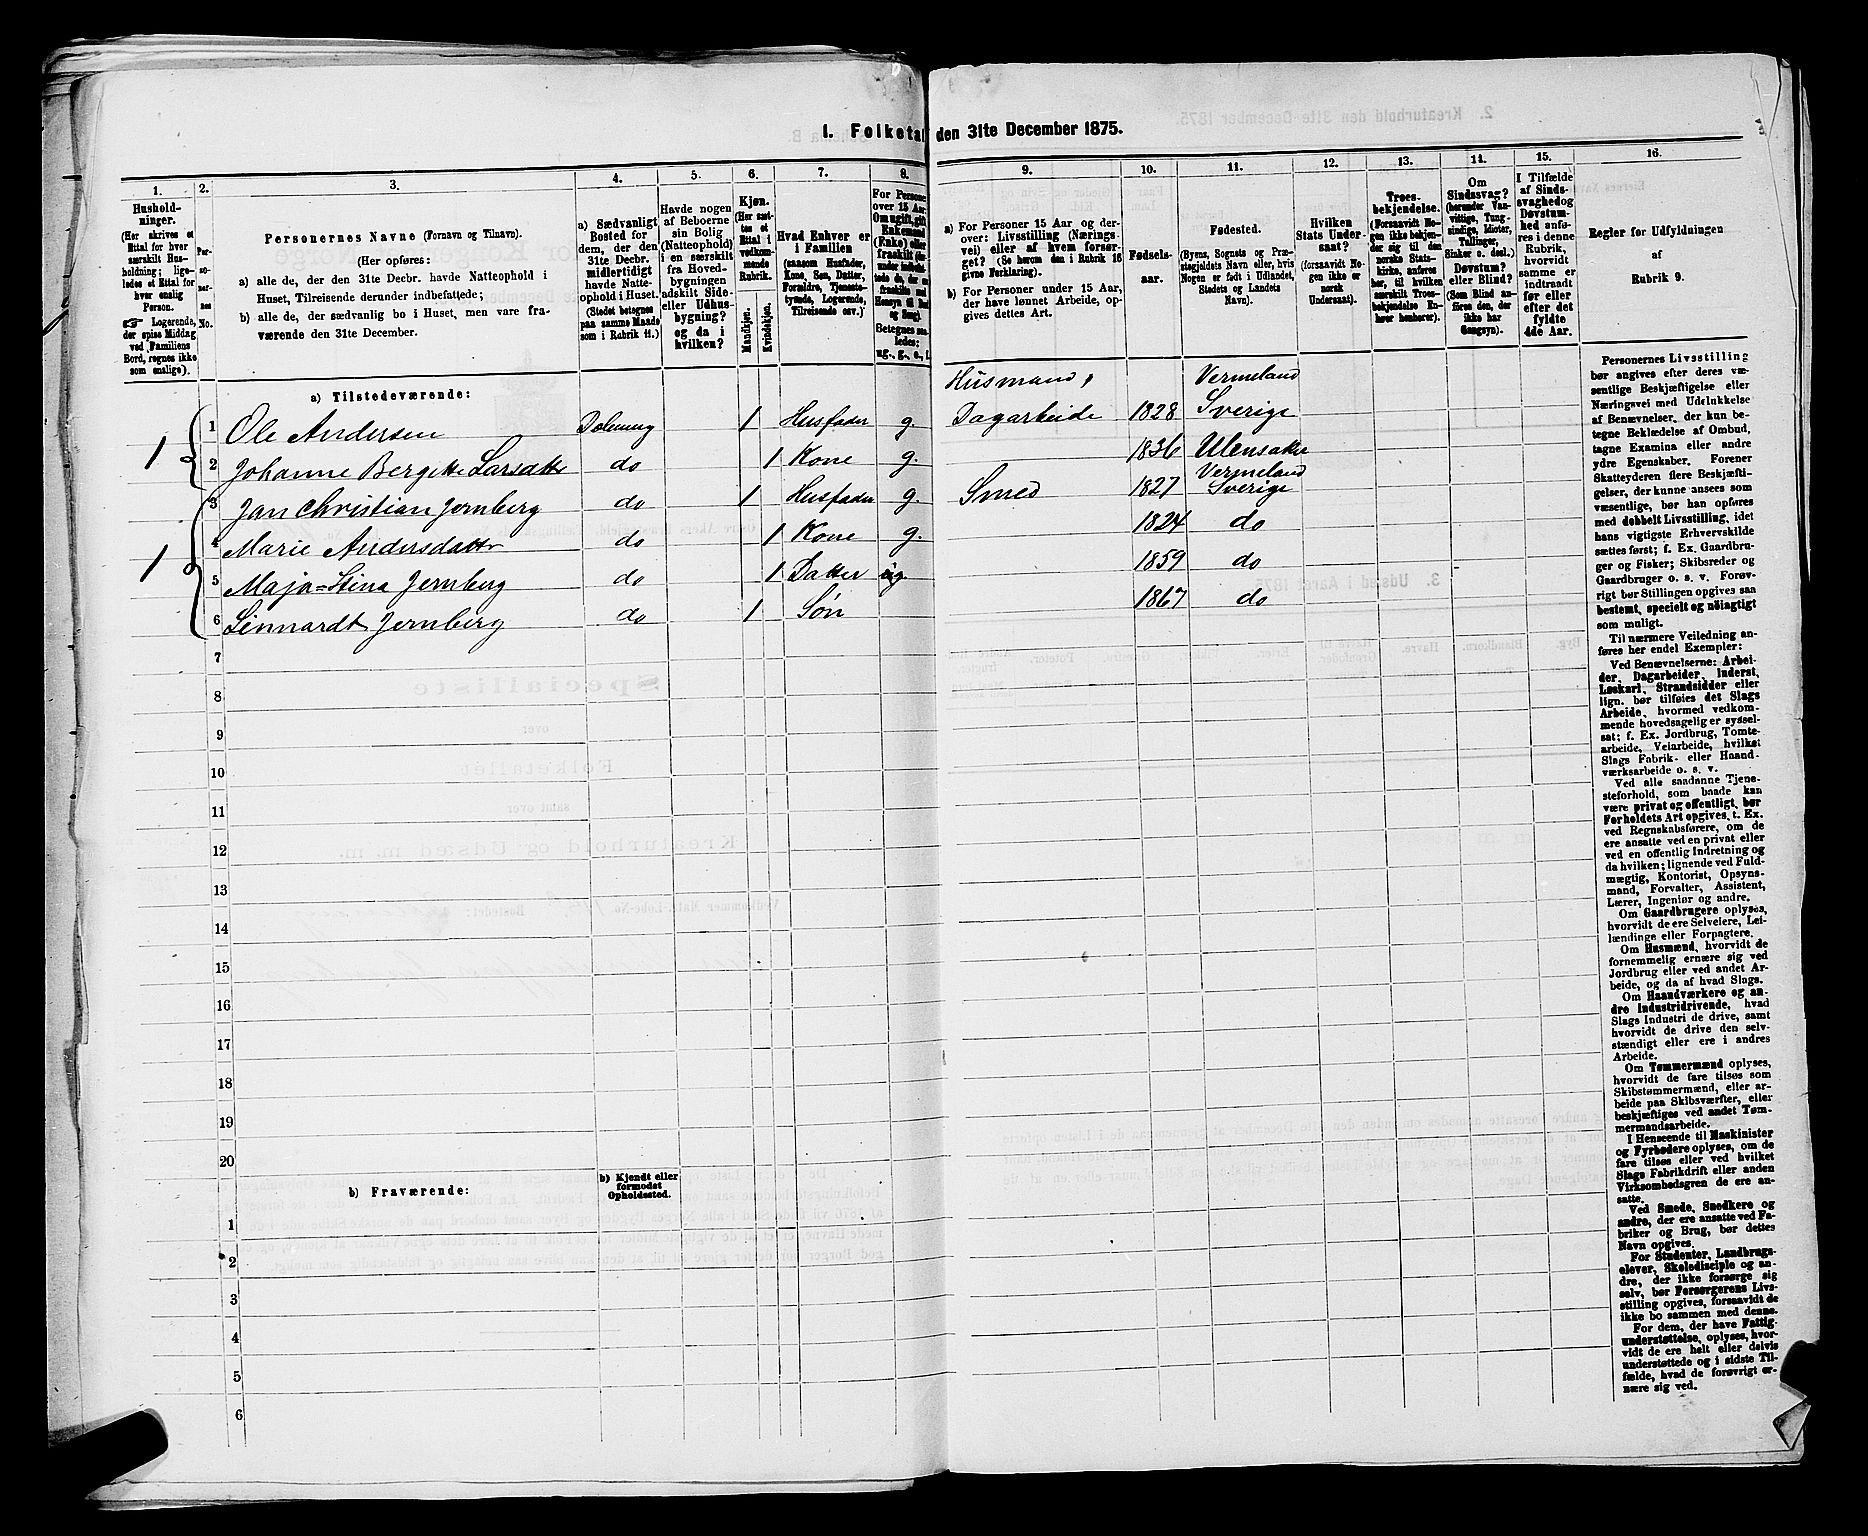 I. Folketal den 31te December 1875.
1. 2. 3. 4. 5. 6. 7. 8. 9. 10. 11. 12. 13. 14. 15. 16.
Husholdninger.
(Her skrives et
Ettal for hver
særskilt Husholdning; ligeledes et Ettal for
hver enslig
Person.
☞ Logerende,
der spise Middag
ved Familiens
Bord, regnes ikke
som enslige).
Personernes No.
Personernes Navne (Fornavn og Tilnavn).
(Her opføres:
a) alle de, der den 31te Decbr. havde Natteophold i
Huset, Tilreisende derunder indbefattede;
b) alle de, der sædvanlig bo i Huset, men vare fraværende den 31te December.
a) Sædvanligt
Bosted for
dem, der den
31te Decbr.
midlertidigt
havde Natteophold i Huset.
(Stedet betegnes
paa samme Maade
som i Rubrik 11.)
Havde nogen
af Beboerne
sin Bolig
(Natteophold)
i en særskilt
fra Hovedbygningen
adskilt Side-
eller Udhusbygning?
og da i
hvilken?
Kjøn.
(Her sættes et
Ettal i
vedkommende
Rubrik.
Mandkjøn.
Kvindekjøn.
Hvad Enhver er
i Familien
(saasom Husfader,
Kone, Søn, Datter,
Forældre, Tjenestetyende, Logerende,
Tilreisende osv.)
For Personer
over 15 Aar
Betegnes saaledes:
ug., g., e., f.
a) For Personer 15 Aar og derover: Livsstilling (Næringsvei) eller af hvem forsørget? (Se herom den i Rubrik 16
givne Forklaring).
b) For Personer under 15 Aar,
der have lønnet Arbeide, opgives dettes Art.
Fødselsaar.
Fødested.
(Byens, Sognets og Præstegjeldets Navn eller, hvis
Nogen er født i Udlandet,
Stedets og Landets
Navn).
Hvilken
Stats Undersaat?
(forsaavidt Nogen ikke er
norsk
Undersaat).
Troesbekjendelse.
(Forsaavidt Nogen ikke bekjender sig til den
norske Statskirke, anføres
her, til hvilken
særskilt Troesbekjendelse Enhver henhører).
Om
Sindssvag?
(herunder Vanvittige, Tungsindige, Idioter,
Tullinger,
Sinker o. desl.)
Døvstum?
eller Blind?
(Som Blind anføres den, der
ikke har
Gangsyn).
I Tilfælde
af Sindssvaghed og
Døvstumhed anføres i denne
Rubrik,
hvorvidt
samme er
indtraadt
før eller
efter det
fyldte
4de Aar.
Regler for Udfyldningen
af
Rubrik 9.
a) Tilstedeværende:
Husmand, Vermeland
1 1 Ole Andersen 1 Husfader g. Dagarbeide 1828 Sverige
2 Johanne Bergitte Larsdatter do 1 Kone g. 1836 Ullensaker
Vermeland
1 3 Jan Christian Jernberg do 1 Husfader g. Smed 1827 Sverige
4 Marie Andersdatter do 1 Kone g. 1824 do
5 Maja-Stina Jernberg do 1 Datter ug. 1859 do
6 Linnardt Jernberg do 1 Søn 1867 do
7
8
9
10
11
12
13
14
15
16
17
18
19
20
b) Fraværende:
b) Kjendt eller
formodet
Opholdssted.
1
2
3
4
5
6
Personernes Livsstilling
bør angives efter deres væsentlige Beskjæftigelse eller
Næringsvei med Udelukkelse
af Benævnelser, der kun betegne Beklædelse af Ombud,
tagne Examina eller andre
ydre Egenskaber. Forener
Skatteyderen flere Beskjæftigelser, der kunne ansees som
væsentlige, bør han opføres
med dobbelt Livsstilling, idet
hans vigtigste Erhvervskilde
sættes først; f. Ex. Gaardbruger og Fisker; Skibsreder og
Gaardbruger o. s. v. Forøvrigt bør Stillingen opgives saa
bestemt, specielt og nøiagtigt
som muligt.
Til nærmere Veiledning anføres her endel Exempler:
Ved Benævnelserne: Arbeider, Dagarbeider, Inderst,
Løskarl, Strandsidder eller
lign. bør tilføies det Slags
Arbeide, hvormed vedkommende hovedsagelig er sysselsat; f. Ex. Jordbrug, Tomtearbeide, Veiarbeide, hvilket
Slags Fabrik- eller Haandværksarbeide o. s. v.
Ved alle saadanne Tjenesteforhold, som baade kan
være privat og offentligt, bør
Forholdets Art opgives, t. Ex.
ved Regnskabsførere, om de
ere ansatte ved en privat eller
ved en offentlig Indretning og
da hvilken; lignende ved Fuldmægtig, Kontorist, Opsynsmand, Forvalter, Assistent,
Lærer, Ingeniør og andre.
Om Gaardbrugere oplyses,
hvorvidt de ere Selveiere, Leilændinge eller Forpagtere.
Om Husmænd, hvorvidt de
fornemmelig ernære sig ved
Jordbrug eller ved andet Arbeide, og da af hvad Slags.
Om Haandværkere og andre Industridrivende, hvad
Slags Industri de drive, samt
hvorvidt de drive den selvstændigt eller ere i andres
Arbeide.
Om Tømmermænd oplyses,
hvorvidt de fare tilsøs som
Skibstømmermænd, eller arbeide paa Skibsværfter, eller
beskjæftiges ved andet Tømmermandsarbeide.
I Henseende til Maskinister
og Fyrbødere oplyses, om de
fare tilsøs eller ved hvilket
Slags Fabrikdrift eller anden
Virksomhedsgren de ere ansatte.
Ved Smede, Snedkere og
andre, der ere ansatte ved Fabriker og Brug, bør dettes
Navn opgives.
For Studenter, Landbrugselever, Skoledisciple og andre, der ikke forsørge sig
selv, bør Forsørgerens Livsstilling opgives, forsaavidt de
ikke bo sammen med denne.
For dem, der have Fattigunderstøttelse, oplyses, hvorvidt de ere helt eller delvis
understøttede og i sidste Tilfælde, hvad de forøvrigt ernære sig ved.